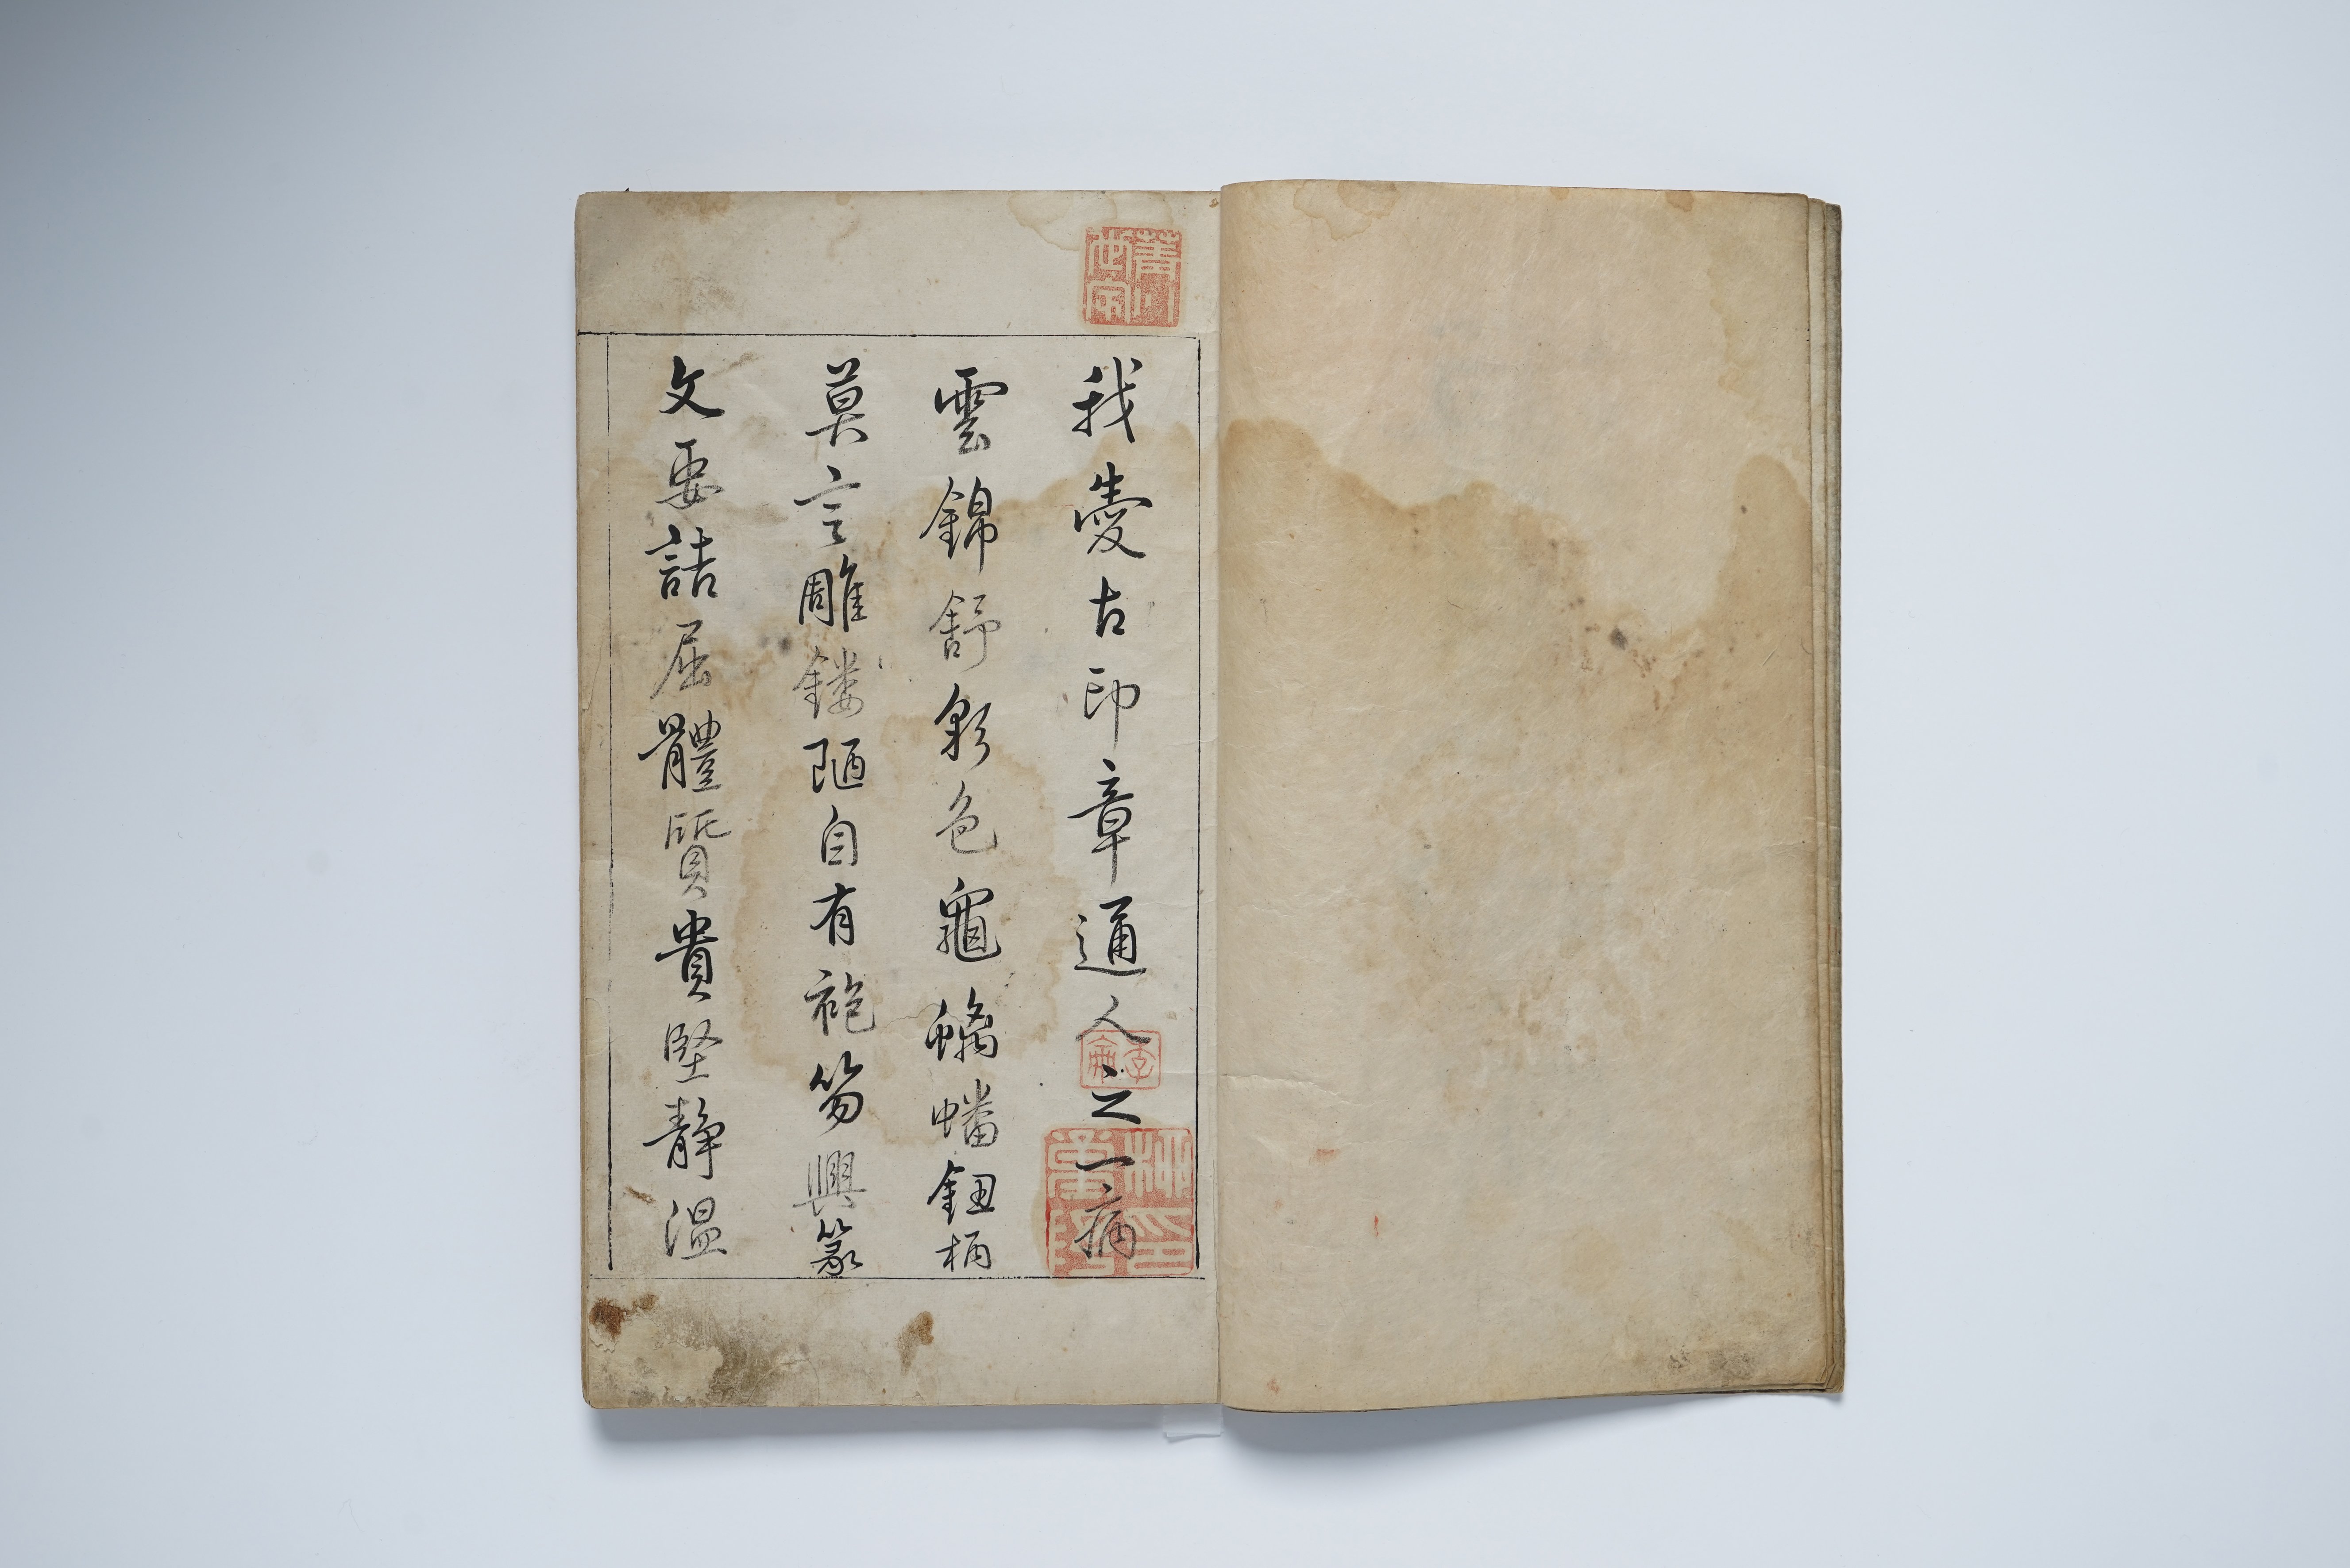 我愛古印章通人之一病
雲錦舒彩色龜螭蟠鈕柄
莫言雕鏤陋自有袍笏興篆
文要詰屈體質貴堅靜溫